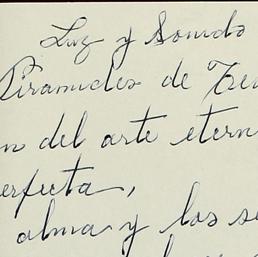 Luz y Sonido
Piramides de Teo
n del arte etern
erfecta,
alma y los se